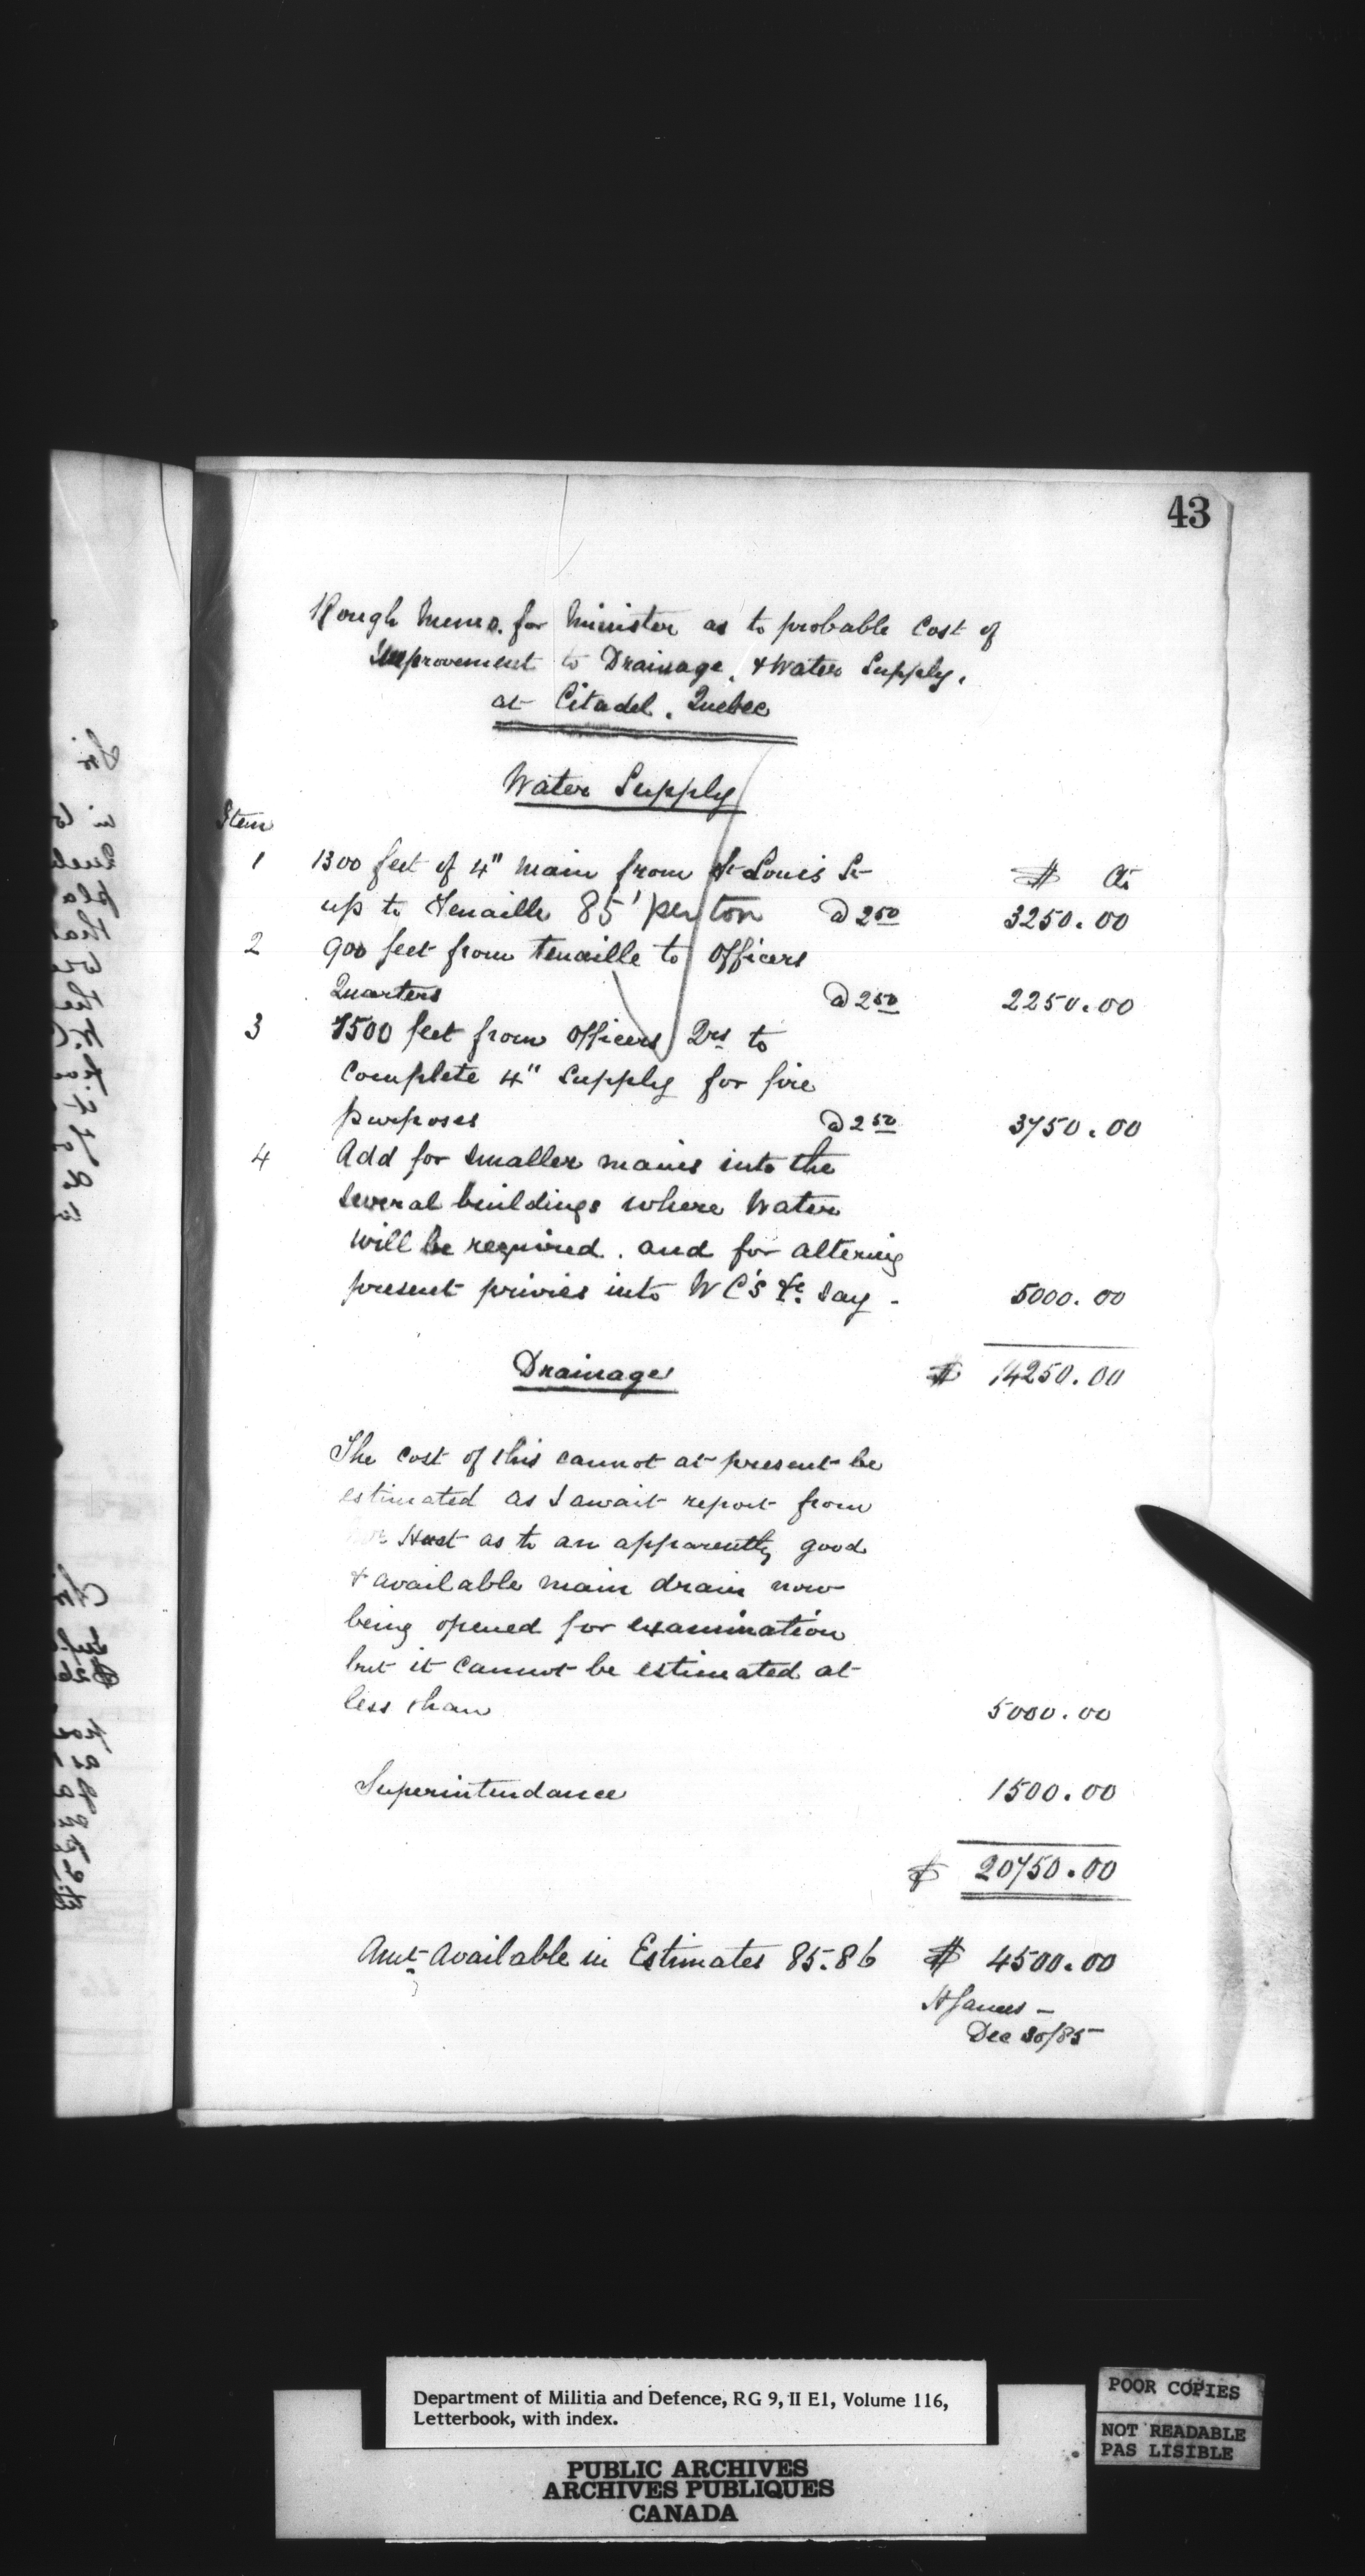 43
Rough Memo. for Minister as to probable Cost of
Improvement to Drainage, & Water Supply,
at Citadel, Quebec
Water Supply
Item
1 1300 feet of 4" Main from St Louis St $ Cts
up to Tenaille 85' per ton @ 2 50 3250.00
2 900 feet from tenaille to Officers
Quarters @ 2 50 2250.00
3 1500 feet from Officers Qrs to
Complete 4" Supply for fire
purposes @ 2 50 3750.00
4 Add for smaller mains into the
several buildings where Water
will be required. and for altering
present privies into W C's &c. say - 5000.00
Drainage $ 14250.00
The cost of this cannot at present be
estimated as I await report from
as to an apparently good
& available main drain now
being opened for examination
but it cannot be estimated at
less than 5000.00
Superintendance 1500.00
$ 20750.00
Amt available in Estimates 85.86 $ 4500.00
H James -
Dec 30/85
Department of Militia and Defence, RG 9, II E1, Volume 116,
Letterbook, with index.
PUBLIC ARCHIVES
ARCHIVES PUBLIQUES
CANADA
POOR COPIES
NOT READABLE
PAS LISIBLE